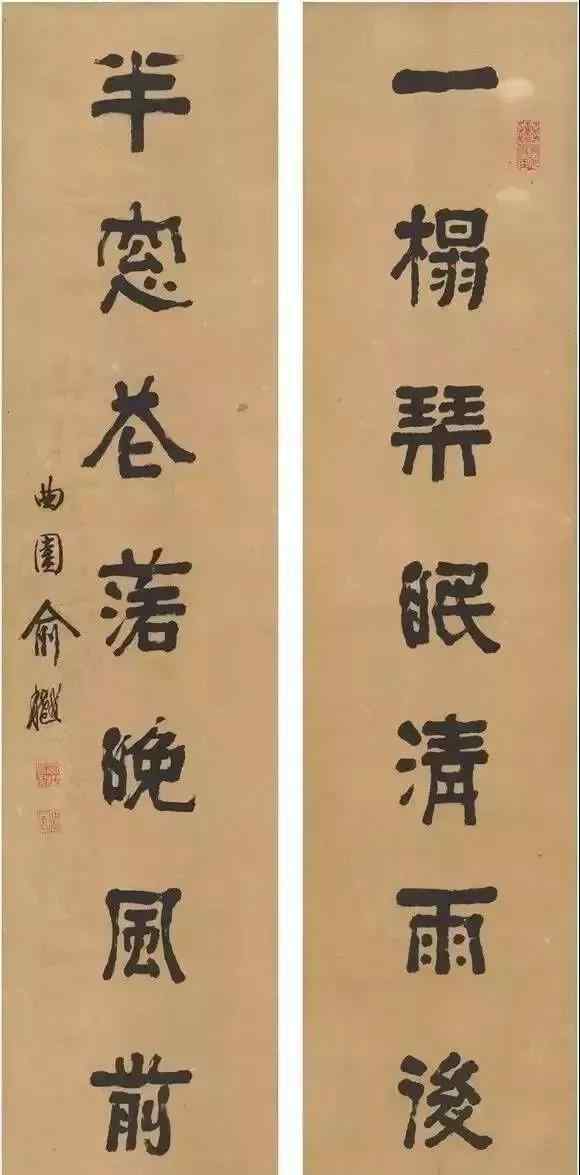 一榻琹眠清雨後
半窓花落晩風前
曲園俞樾